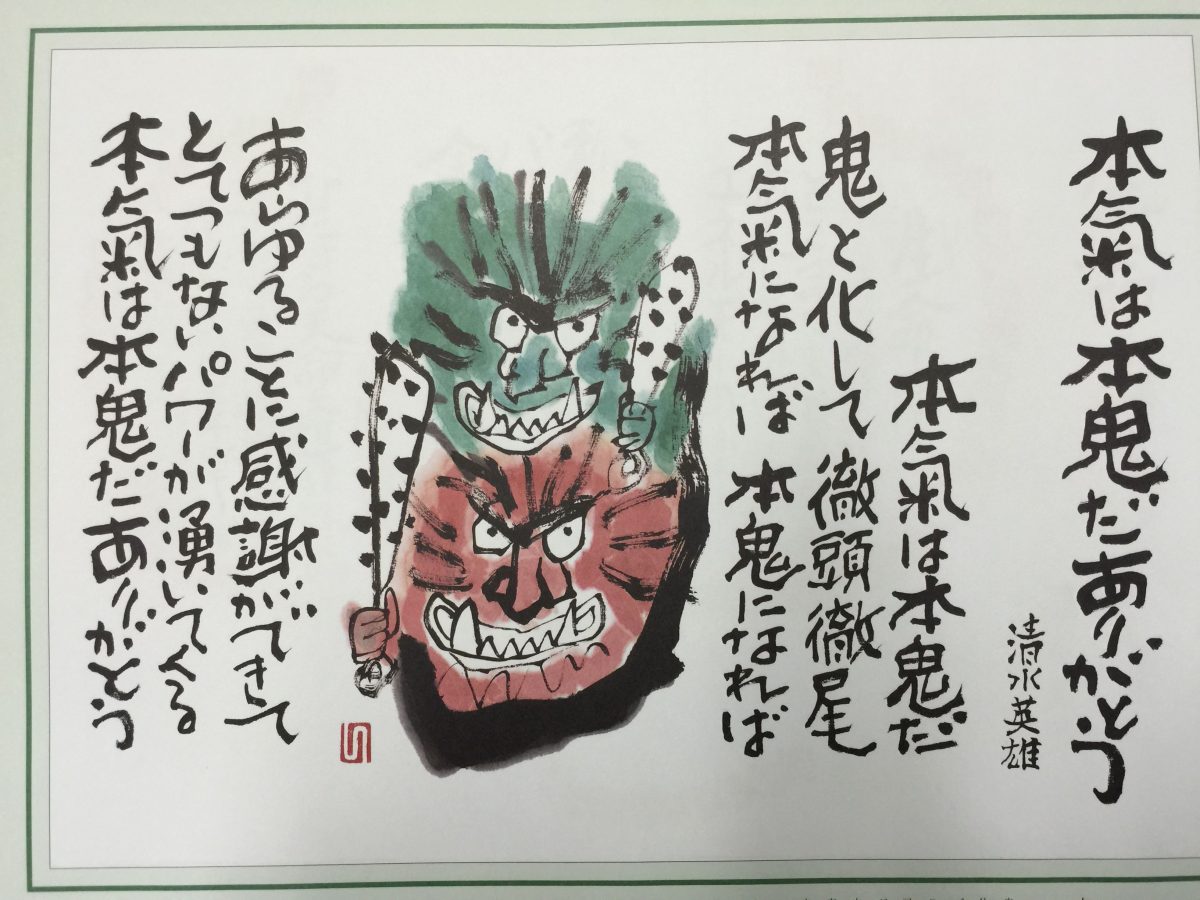 本氣は本鬼だありがとう
清水英雄
本氣は本鬼だ
鬼と化して 徹頭徹尾
本氣になれば 本鬼になれば
あらゆることに感謝ができて
とてつもないパワーが湧いてくる
本氣は本鬼だありがとう